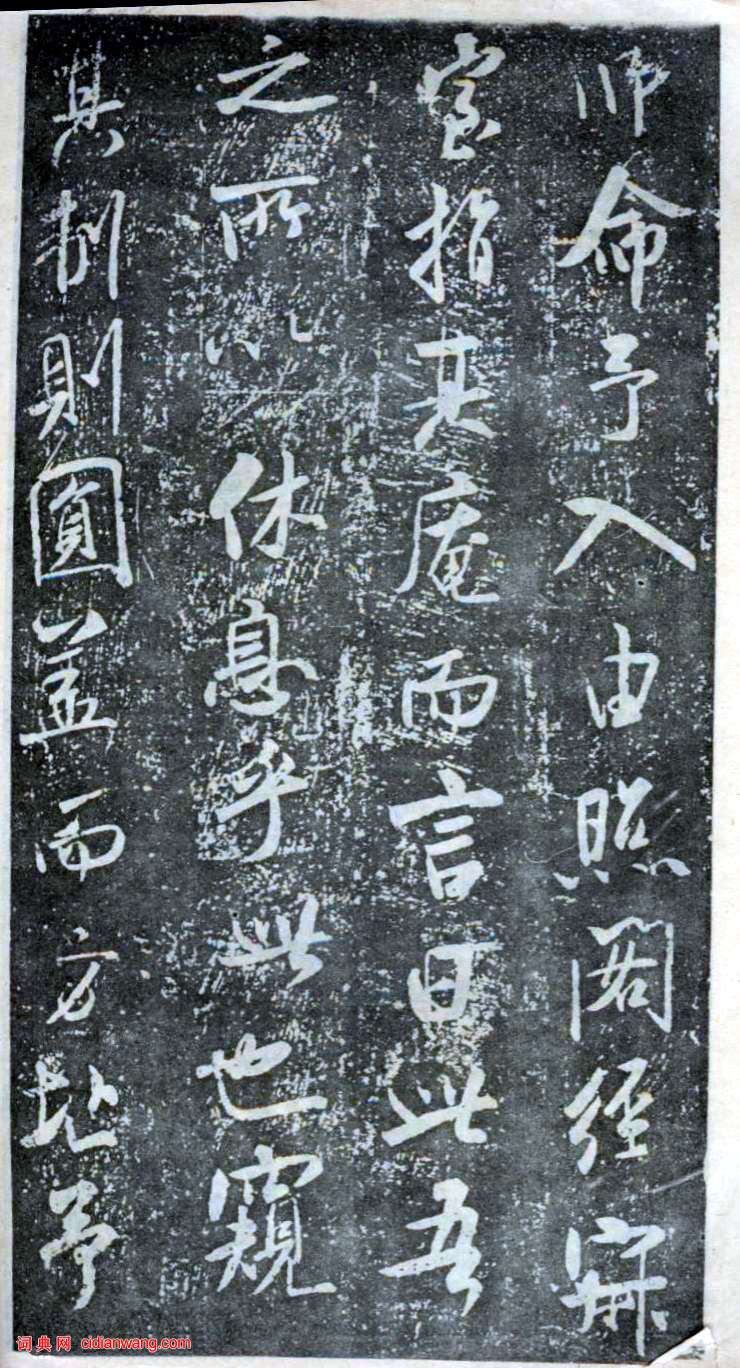 师命予入由照阁经寂
室指其庵而言曰此吾
之所以休息乎此也窥
其制则圆盖而方址予
词典网 cidianwang.com